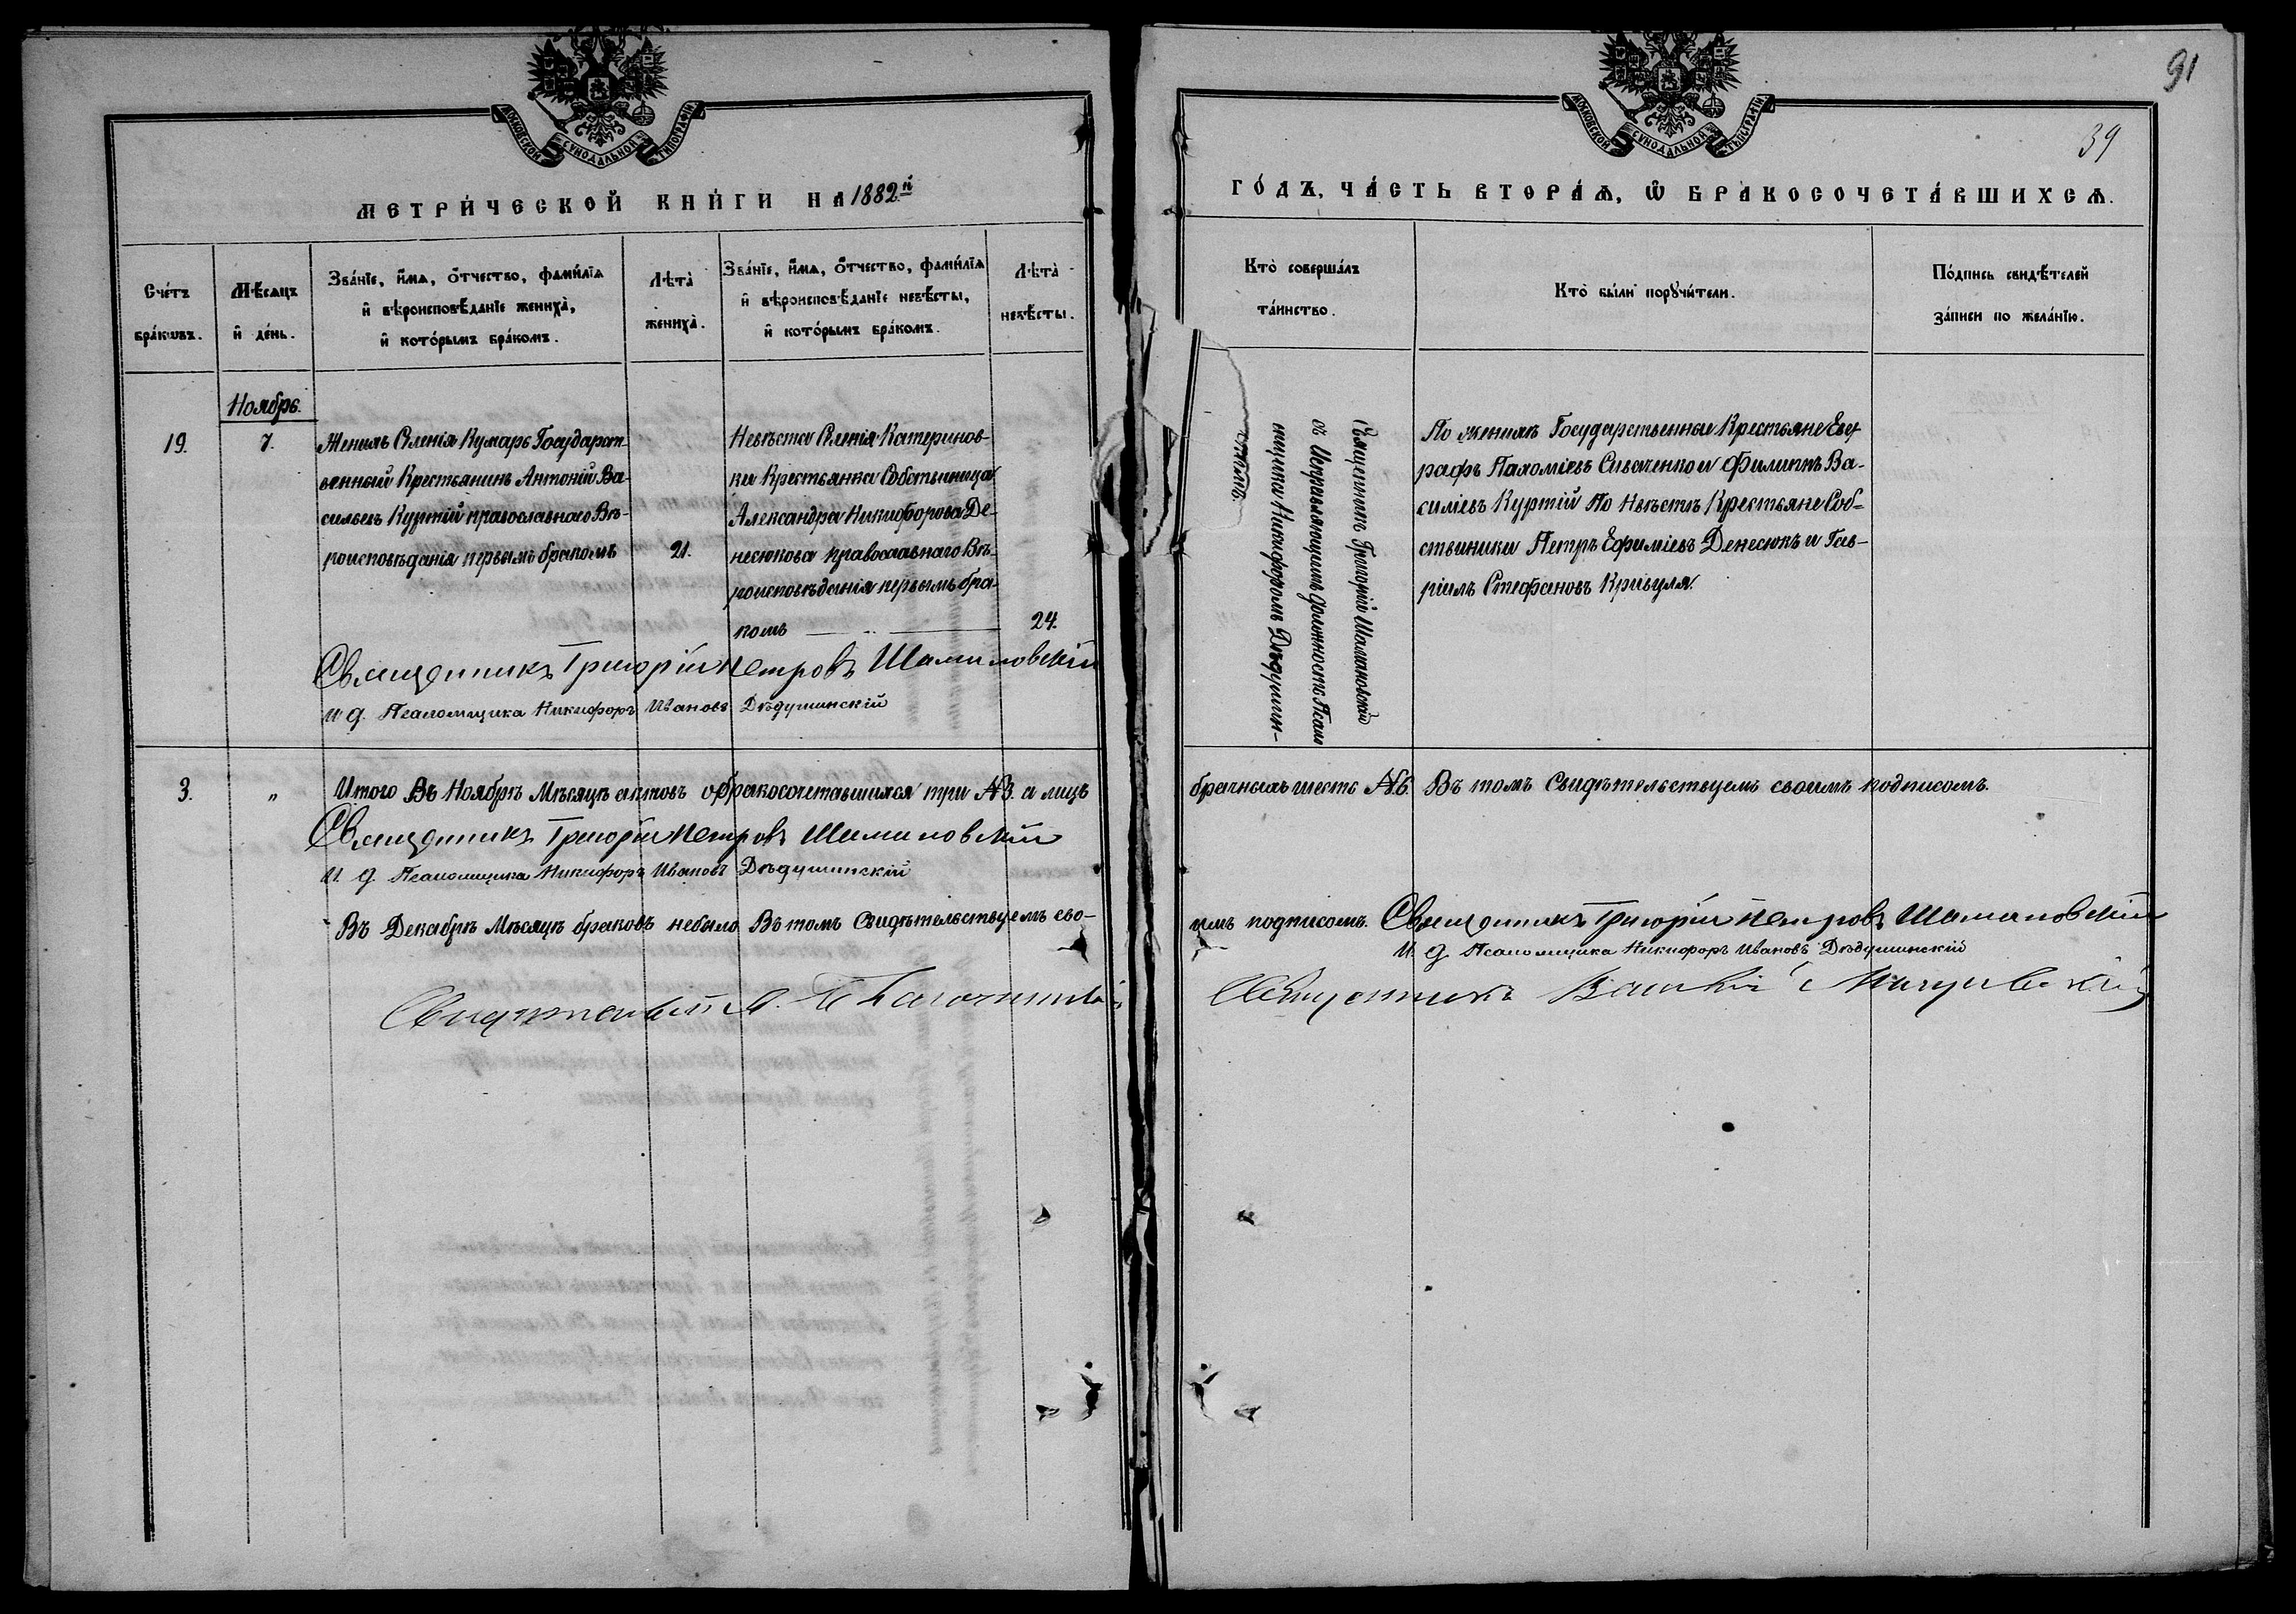 91
39
МОСКОВСКОЙ СѴНОДАЛЬНОЙ ТИПОГРАФІИ
МЕТРИ́ЧЕСКОЙ КНИ́ГИ НА 1882й
МОСКОВСКОЙ СѴНОДАЛЬНОЙ ТИПОГРАФІИ
ГО́ДЪ, ЧА́СТЬ ВТОРА́Ѧ, Ѡ҆ БРАКОСОЧЕТА́ВШИХСѦ.
Сче́тъ
бра́кѡвъ.
Мѣ́сѧцъ
и҆ де́нь.
Зва́нїе, и҆́мѧ, ѻ҆́тчество, фамі́лїѧ
и҆ вѣроисповѣ́данїе жениха̀,
и҆ кото́рымъ бра́комъ.
Лѣ́та̀
жениха̀.
Зва́нїе, и҆́мѧ, ѻ҆́тчество, фамі́лїѧ
и҆ вѣроисповѣ́данїе невѣ́сты,
и҆ кото́рымъ бра́комъ.
Лѣ́та̀
невѣ́сты.
Кто̀ соверша́лъ
та́инство.
Кто̀ бы́ли порꙋчи́тели.
По́дпись свидѣ́телей
за́писи по жела́нїю.
Ноябрь.
19.
7.
Женихъ Селенія Кумаръ Государст-
венный Крестьянинъ Антоній Ва-
сильевъ Куртій православнаго Вѣ-
роисповѣданія первымъ бракомъ
21.
Невѣста Селенія Катеринов-
ки Крестьянка Собственица
Александра Никифорова Де-
несюкова православнаго Вѣ-
роисповѣданія первымъ бра-
комъ
24.
Священникъ Григорій Шамановскій
съ Исправляющимъ должность Псало
мщика Никифоромъ Дѣдушин-
скимъ.
По женихѣ Государственные Крестьяне Евг
рафъ Пахоміевъ Сиваченко и Филиппъ Ва-
силіевъ Куртій По Невѣстѣ Крестьяне Соб-
ственики Петръ Ефиміевъ Денесюкъ и Гав-
ріилъ Стефановъ Кривуля.
Священникъ Григорій Петровъ Шамановскій
и д. Псаломщика Никифоръ Ивановъ Дѣдушинскій
3.
"
Итого Въ Ноябрѣ Мѣсяцѣ актовъ о бракосочетавшихся три №3. а лицъ
брачныхъ шесть №6. Въ томъ Свидѣтельствуемъ своимъ подписомъ.
Священникъ Григорій Петровъ Шамановскій
И. д. Псаломщика Никифоръ Ивановъ Дѣдушинскій
Въ Декабрѣ Мѣсяцѣ браковъ небыло Въ томъ Свидѣтельствуемъ сво-
имъ подписомъ. Священникъ Григорій Петровъ Шамановскій
И. д. Псаломщика Никифоръ Ивановъ Дѣдушинскій
Священникъ